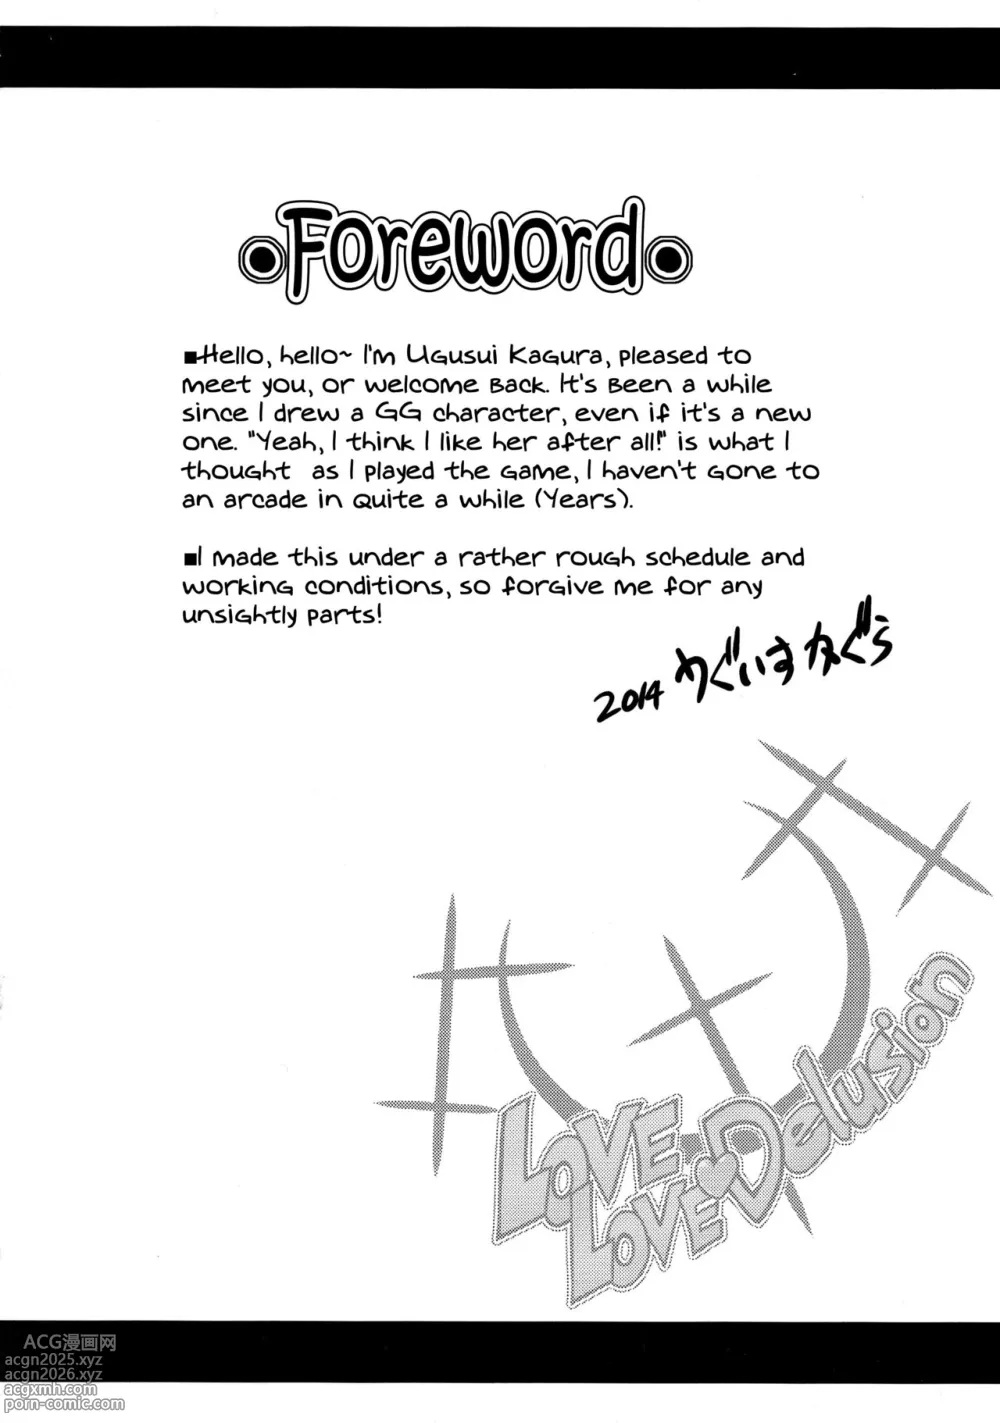 Foreword
■Hello, hello~ I'm Ugusui Kagura, pleased to
meet you, or welcome back. It's been a while
since I drew a GG character, even if it's a new
one. "Yeah, I think I like her after all!" is what I
thought as I played the game, I haven't gone to
an arcade in quite a while (Years).
■I made this under a rather rough schedule and
working conditions, so forgive me for any
unsightly parts!
2014 うぐいすかぐら
LOVE
LOVE♥Delusion
ACG漫画网
acgn2025.xyz
acgn2026.xyz
acgxmh.com
porn-comic.com